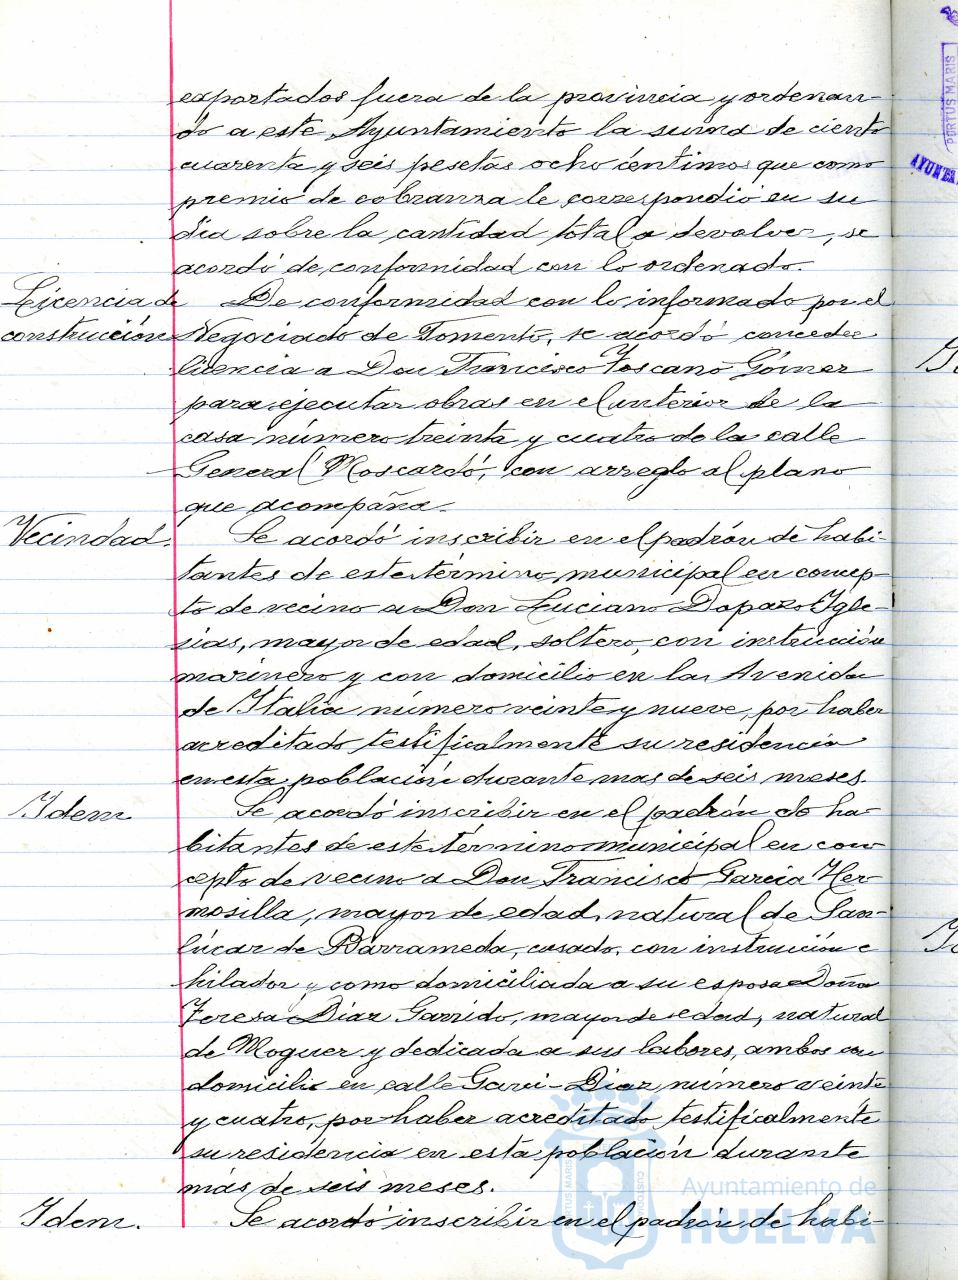 exportados fuera de la provincia y ordenan-
do a este Ayuntamiento la suma de ciento
cuarenta y seis pesetas ocho céntimos que como
premio de cobranza le correspondió en su
día sobre la cantidad total a devolver, se
acordó de conformidad con lo ordenado.
Licencia de
construcción
De conformidad con lo informado por el
Negociado de Fomento, se acordó conceder
licencia a Don Francisco Toscano Gómez
para ejecutar obras en el interior de la
casa número treinta y cuatro de la calle
General Moscardó, con arreglo al plano
que acompaña.
Vecindad.
Se acordó inscribir en el padrón de habi-
tantes de este término municipal en concep-
to de vecino a Don Luciano Dopazo Igle-
sias, mayor de edad, soltero, con instrucción
marinero y con domicilio en la Avenida
de Italia número veinte y nueve, por haber
acreditado testificalmente su residencia
en esta población durante mas de seis meses.
Idem.
Se acordó inscribir en el padrón de ha-
bitantes de este término municipal en con-
cepto de vecino a Don Francisco Garcia Her-
mosilla, mayor de edad, natural de San-
lúcar de Barrameda, casado, con instrucción e
hilador y como domiciliada a su esposa Doña
Teresa Diaz Garrido, mayor de edad, natural
de Moguer y dedicada a sus labores, ambos con
domicilio en calle Garci-Diaz número veinte
y cuatro, por haber acreditado testificalmente
su residencia en esta población durante
más de seis meses.
Idem.
Se acordó inscribir en el padrón de habi-
PORTUS MARIS
AYUNTA
PORTUS MARIS
CUSTO
Ayuntamiento de
HUELVA